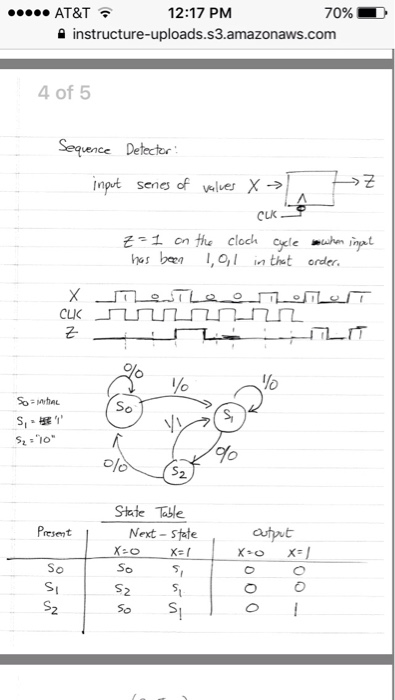 AT&T 12:17 PM 70%
instructure-uploads.s3.amazonaws.com
4 of 5
Sequence Detector:
input series of values X → → Z
CLK
Z = 1 on the clock cycle when input
has been 1,0,1 in that order.
X 1 0 1 0 0 1 0 1 0 1
CLK
Z
0/0
1/0
1/0
S0 = initial
S1 = "1"
S2 = "10"
S0
S1
1/1
0/0
0/0
S2
State Table
Present Next-state output
X=0 X=1 X=0 X=1
S0 S0 S1 0 0
S1 S2 S1 0 0
S2 S0 S1 0 1